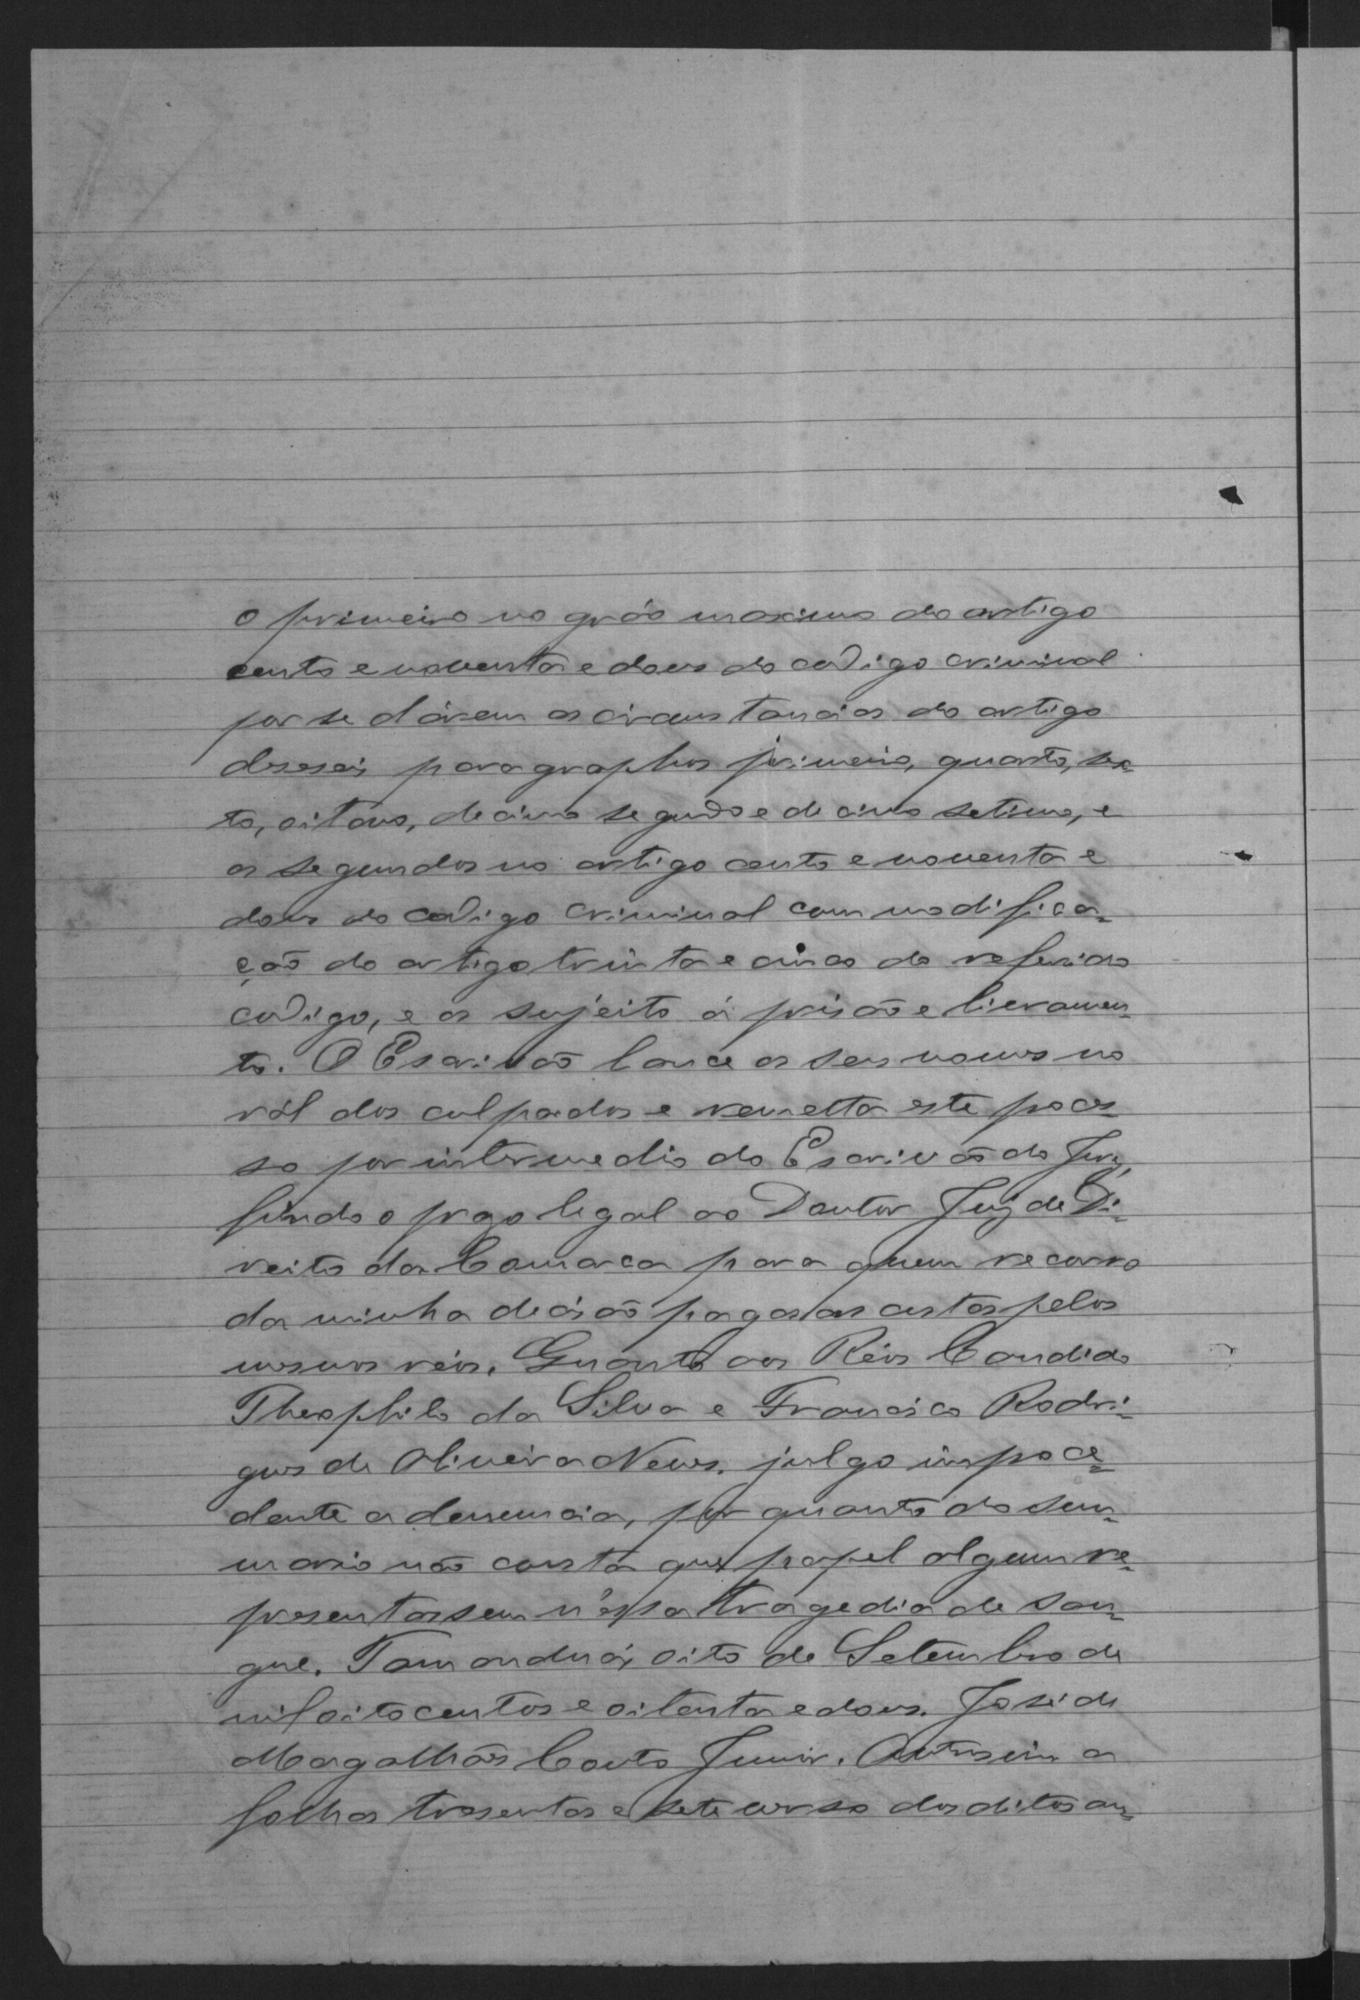 o primeiro no gráo maximo do artigo
cento e noventa e dous do codigo criminal
por se dárem as circunstancias do artigo
deseseis paragraphos primeiro, quarto, sex
to, oitavo, decimo segundo e decimo setimo, e
os segundos no artigo cento e noventa e
dous do codigo criminal com modifica-
ção do artigo trinta e cinco do referido
codigo, e os sujeito á prisão e livramen-
to. O Escrivão lance os seus nomes no
ról dos culpados e remetta este proces
so por intermedio do Escrivão do Jury,
findo o praso legal ao Doutor Juiz de Di-
reito da Comarca para quem recorro
da minha decisão pagas as custas pelos
mesmos réos. Quanto aos Réos Candido
Theophilo da Silva e Francisco Rodri-
gues de Oliveira Neves, julgo improce-
dente a denuncia, por quanto do sum-
mario não consta que papel algum re-
presentassem n'essa tragedia de san-
gue. Tamanduá, oito de Setembro de
mil oitocentos e oitenta e dous. José de
Magalhães Couto Junior. Outrosim a
folhas tresentas e sete verso dos ditos au-